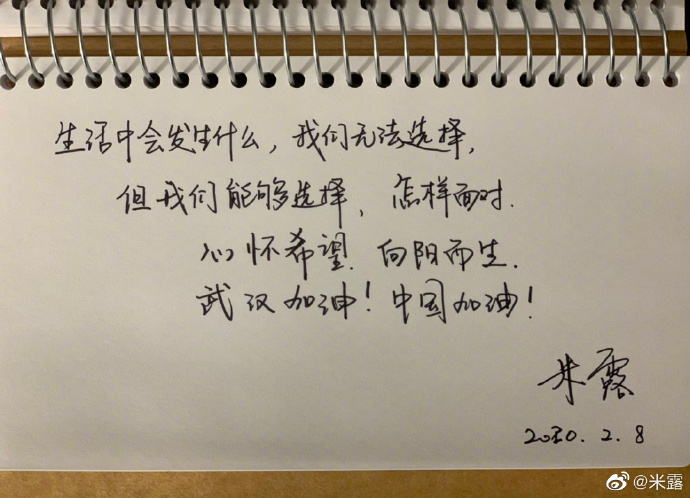 生活中会发生什么，我们无法选择，
但我们能够选择，怎样面对.
心怀希望.向阳而生.
武汉加油！中国加油！
米露
2020.2.8
@米露